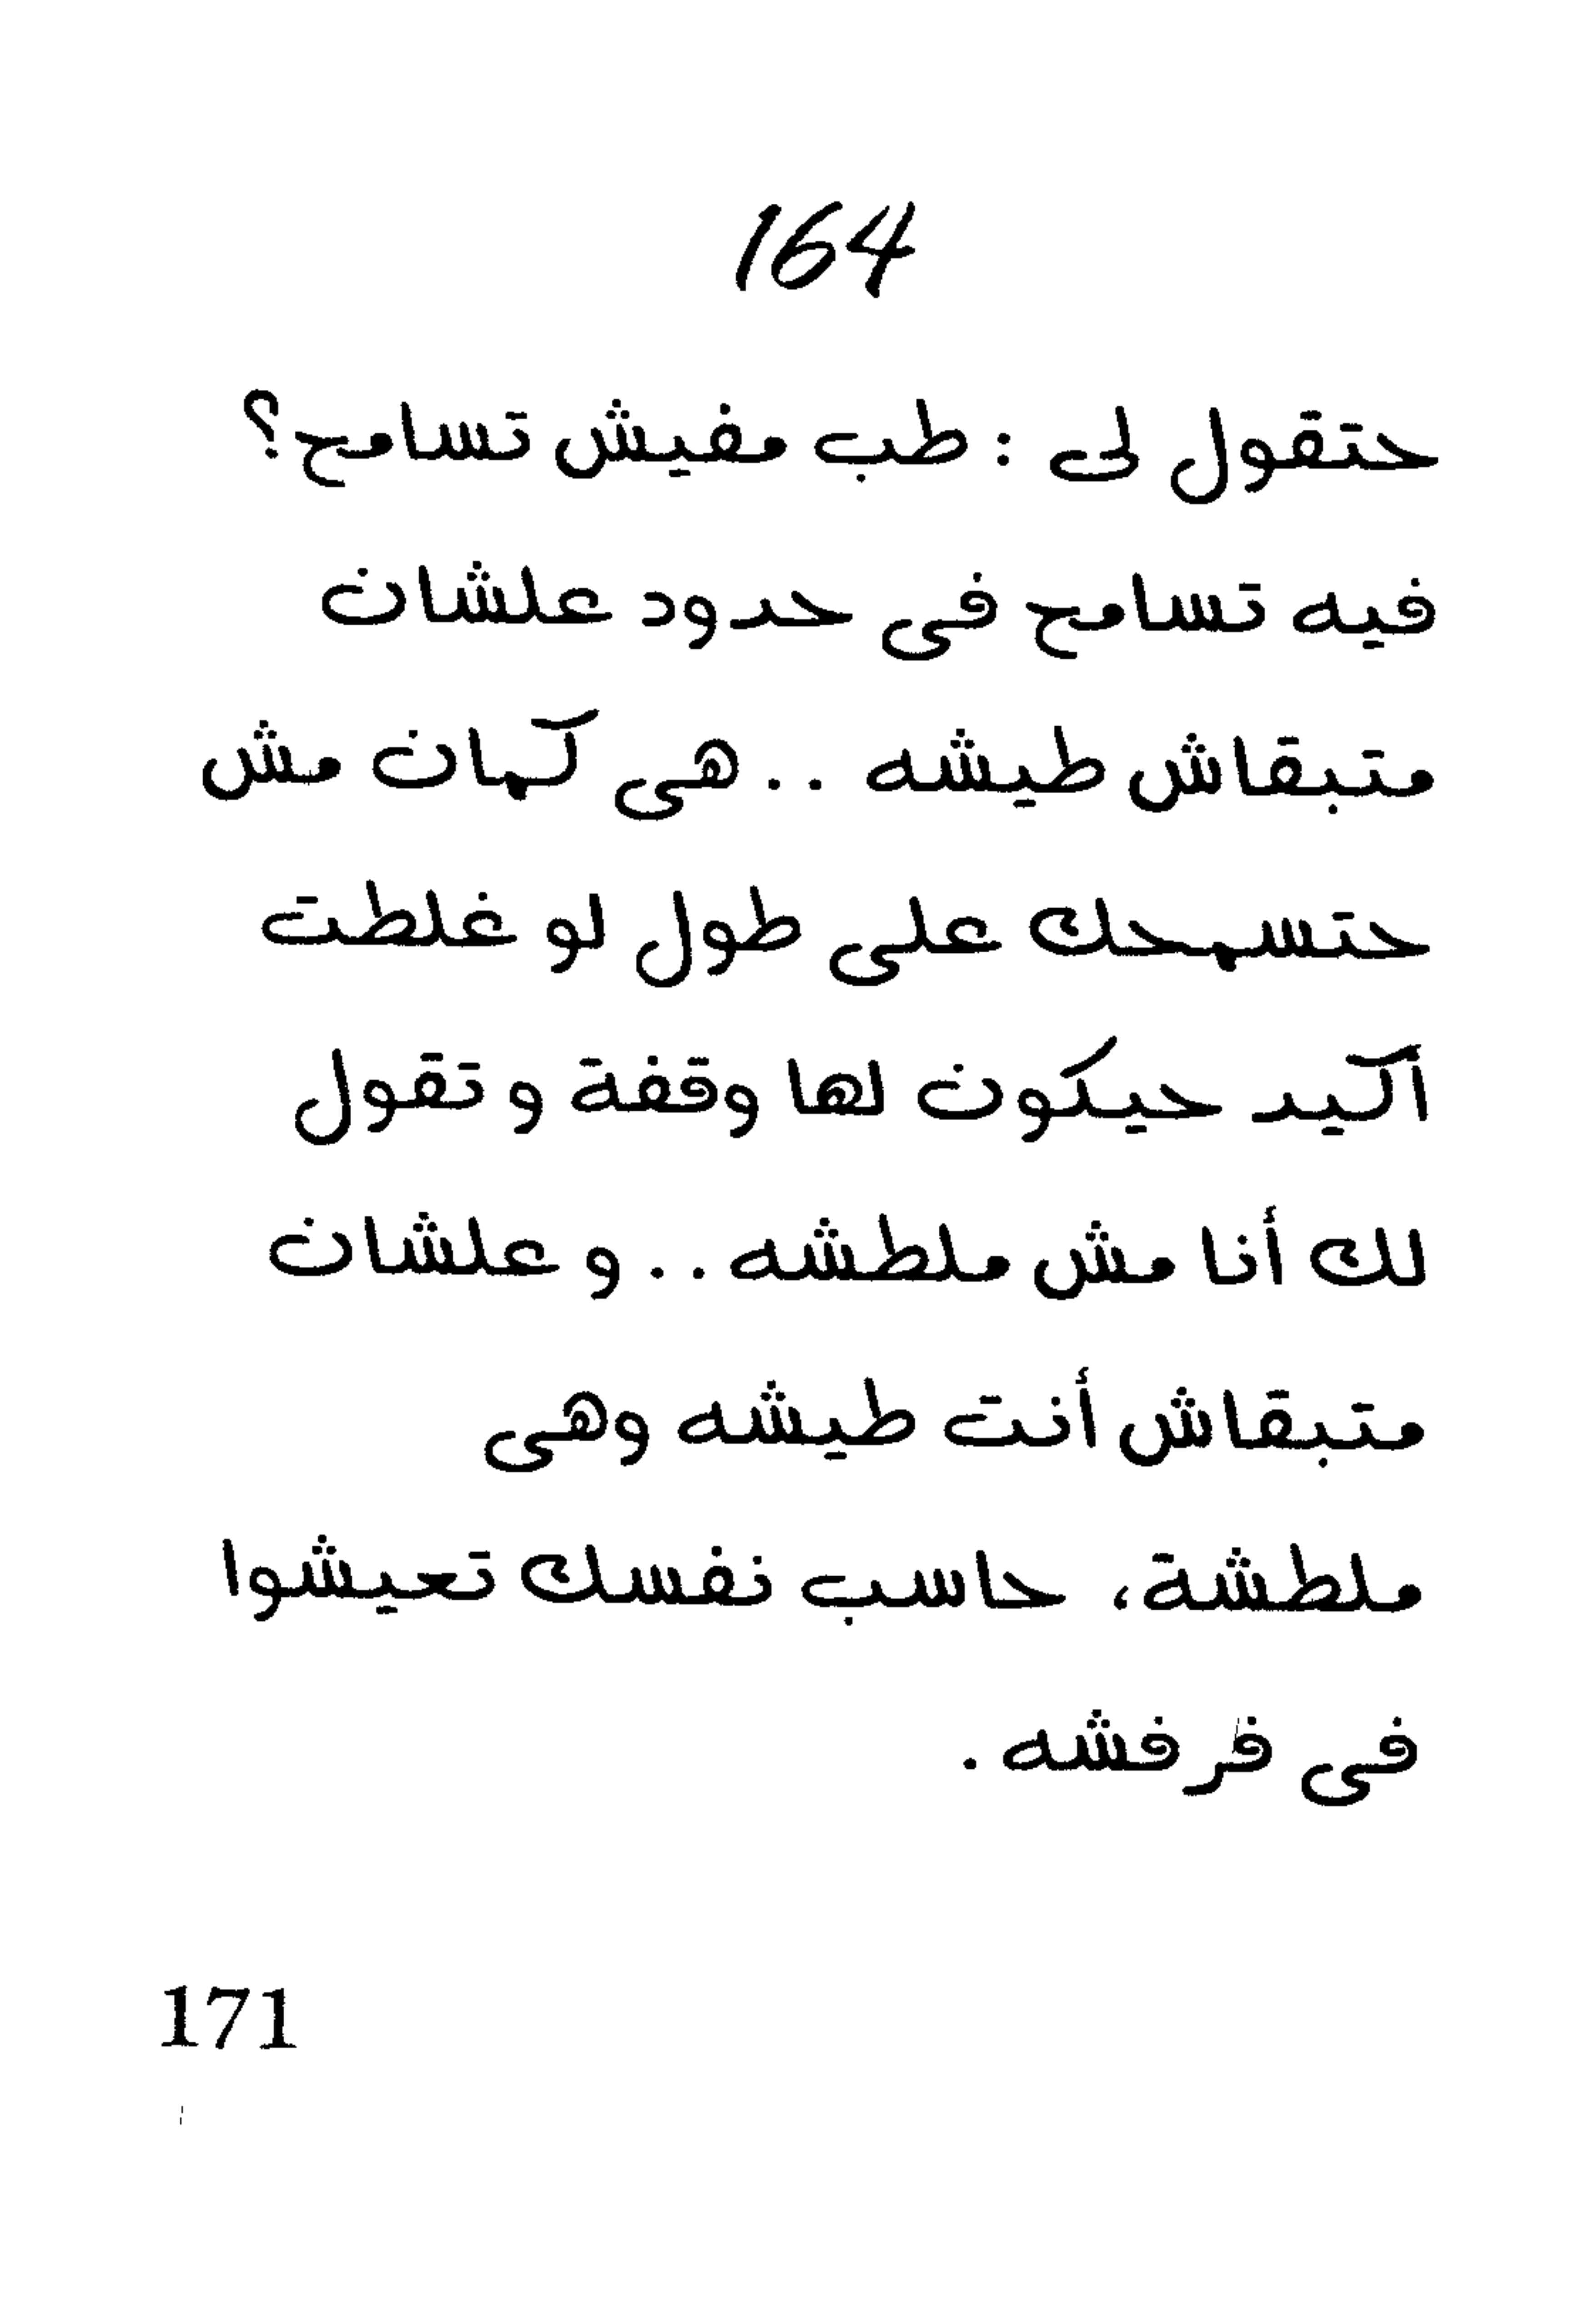 164
حتقول لى : طب مفيش تسامح؟
فيه تسامح فى حدود علشان
متبقاش طيشه .. هى كمان مش
حتسمحك على طول لو غلطت
أكيد حيكون لها وقفة و تقول
لك أنا مش ملطشه .. و علشان
متبقاش أنت طيشه وهى
ملطشة، حاسب نفسك تعيشوا
فى فرفشه .
171